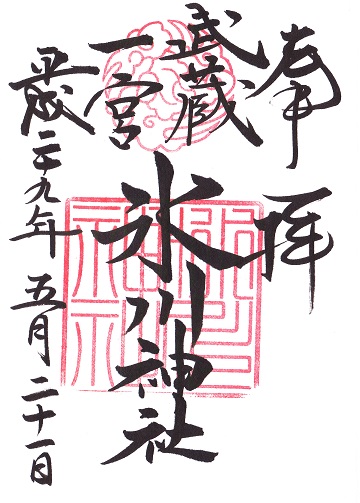 奉拝
武蔵
一宮
氷川神社
平成二十九年五月二十一日